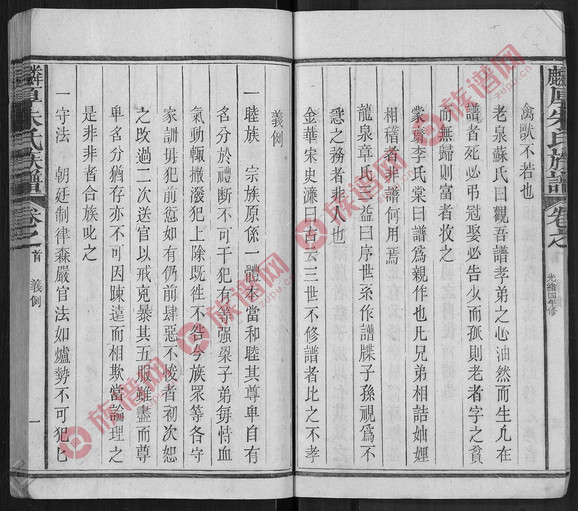 麟厚朱氏族譜
卷之
光緒四年修
禽獸不若也
老泉蘇氏曰觀吾譜孝弟之心油然而生凡在
譜者死必弔冠娶必告少而孤則老者字之貧
而無歸則富者收之
蒙齋李氏棠曰譜爲親作也凡兄弟相詰妯娌
相稽者非譜何用焉
龍泉章氏三益曰序世系作譜牒子孫視爲不
急之務者非人也
金華宋史濂曰古云三世不修譜者比之不孝
義例
一睦族 宗族原係一體本當和睦其尊卑自有
名分於禮斷不可干犯有等强梁子弟每恃血
氣動輒撒潑犯上除既徃不咎今族眾等各守
家訓毋犯前愆如有仍前肆惡不悛者初次恕
之改過二次送官以戒兇暴其五服雖盡而尊
卑名分猶存亦不可因踈遠而相欺當論理之
是非非是者合族叱之
一守法 朝廷制律森嚴官法如爐勢不可犯凡
麟厚朱氏族譜
卷之
首
義例
一
族谱网
zupu.cn